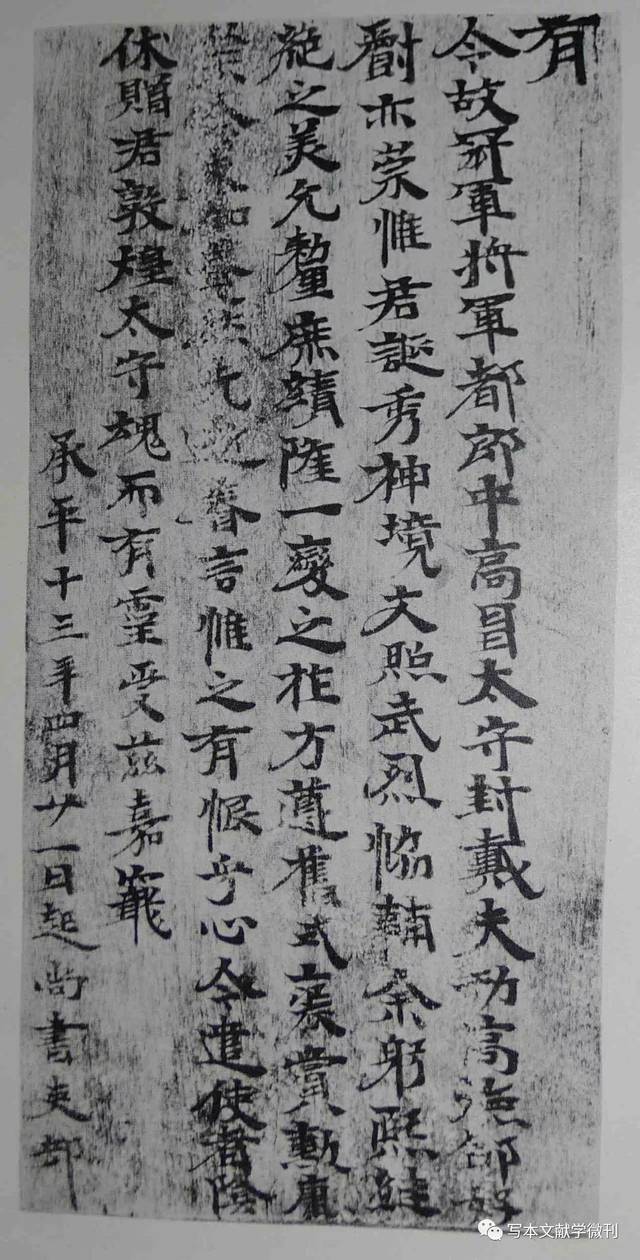 有
令故冠軍将軍都郎中高昌太守封戴夫功高徳邵好
爵亦崇惟君誕秀神境文照武烈恊輔余躬熈継
絶之美允釐庶績隆一變之祚方遵舊式襃賞勲庸
眷言惟之有恨乎心今遣使者陰
休贈君敦煌太守魂而有靈受茲嘉寵
承平十三年四月廿一日起尚書吏部
写本文献学微刊